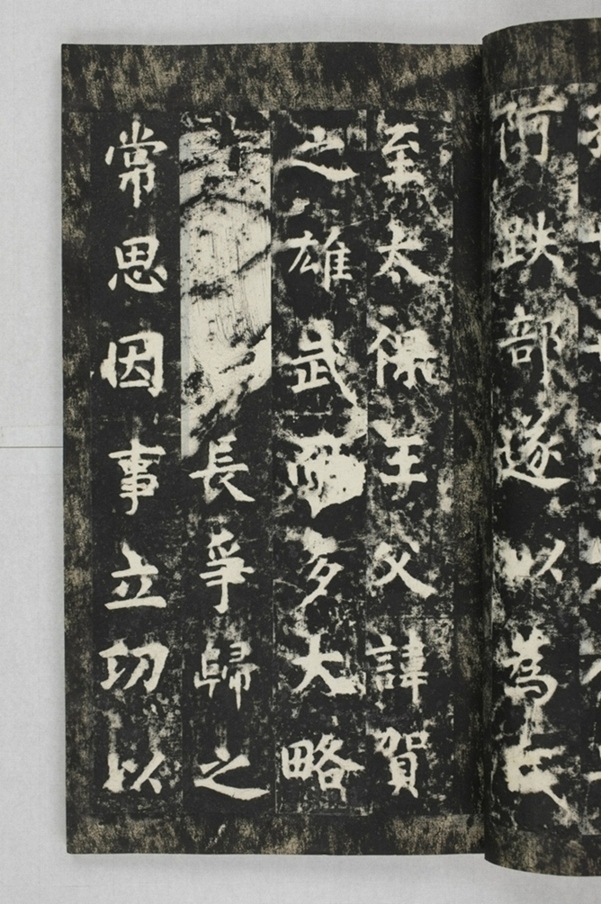 阿跌部遂以為氏
至太保王父諱賀
之雄武多大略
長爭歸之
常思因事立功以